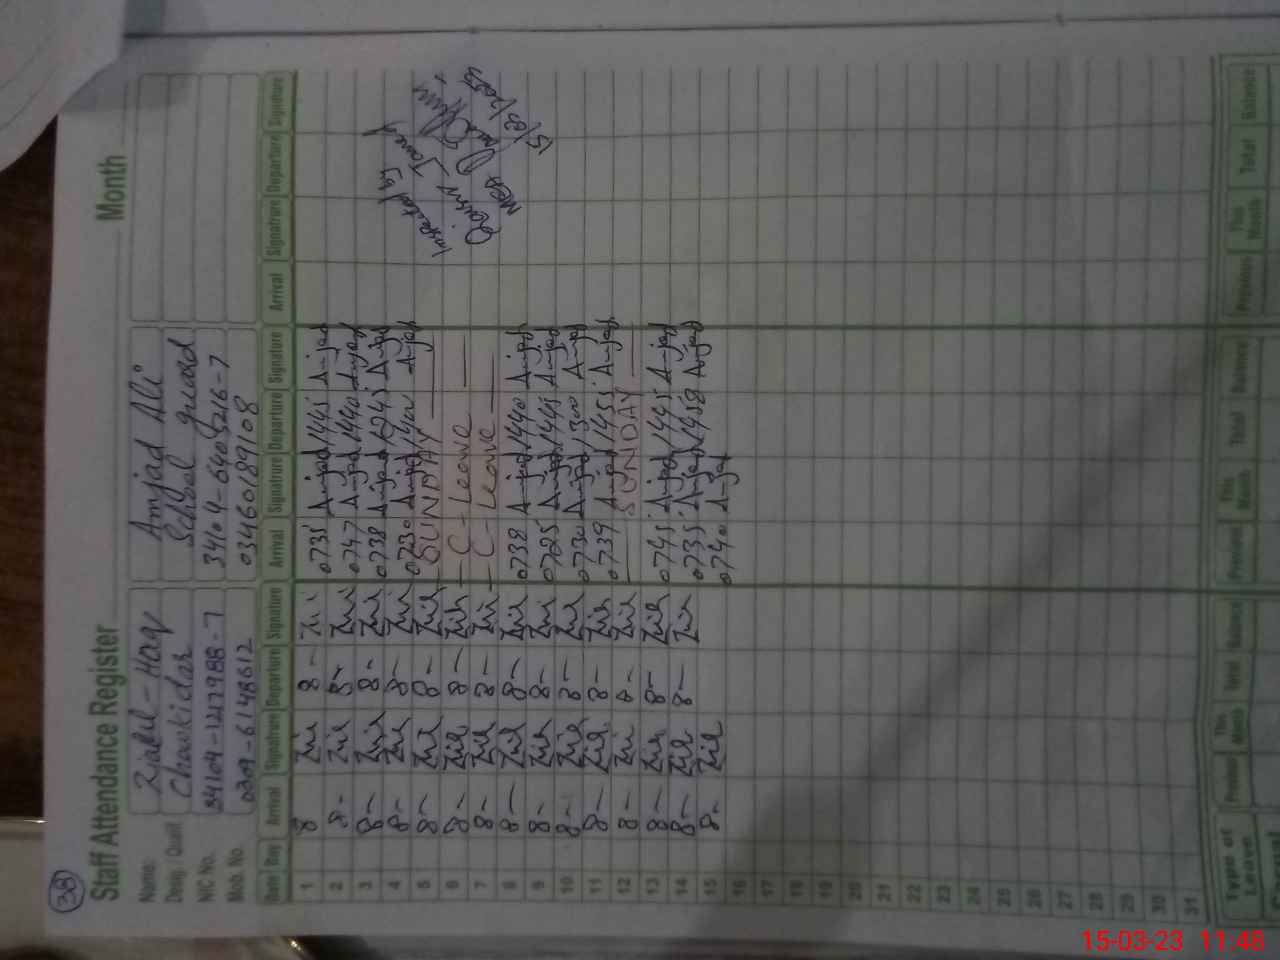 38
Staff Attendance Register Month
Name: Ziaul-Haq Amjad Ali
Desig / Quali Chowkidar School guard
NIC No. 34104-1217988-7 34104-6405216-7
Mob. No. 03460189108
Date Day Arrival Signature Departure Signature Arrival Signature Departure Signature Arrival Signature Departure Signature
1 8 Zia 8- Zia 0735 Amjad 1445 Amjad
2 8- Zia 8- Zia 0747 Amjad 1440 Amjad
3 8- Zia 8- Zia 0738 Amjad 1245 Amjad
4 8- Zia 8- Zia 0730 Amjad Amjad
5 8- Zia 8- Zia SUNDAY
6 8- Zia 8- Zia C-Leave
7 8- Zia 8- Zia C-Leave
8 8- Zia 8- Zia 0738 Amjad 1440 Amjad
9 8- Zia 8- Zia 0725 Amjad 1445 Amjad
10 8- Zia 8- Zia 0730 Amjad 1300 Amjad
11 8- Zia 8- Zia 0739 Amjad 1455 Amjad
12 8- Zia 8- Zia SUNDAY
13 8- Zia 8- Zia 0745 Amjad 1445 Amjad
14 8- Zia 8- Zia 0735 Amjad 1458 Amjad
15 8- Zia 0740 Amjad
16
17
18
19
20
21
22
23
24
25
26
27
28
29
30
31
Inspected by
Javed
MEA
15/03/2023
Type of Leave Previous This Month Total Balance Previous This Month Total Balance Previous This Month Total Balance
15-03-23 11:48